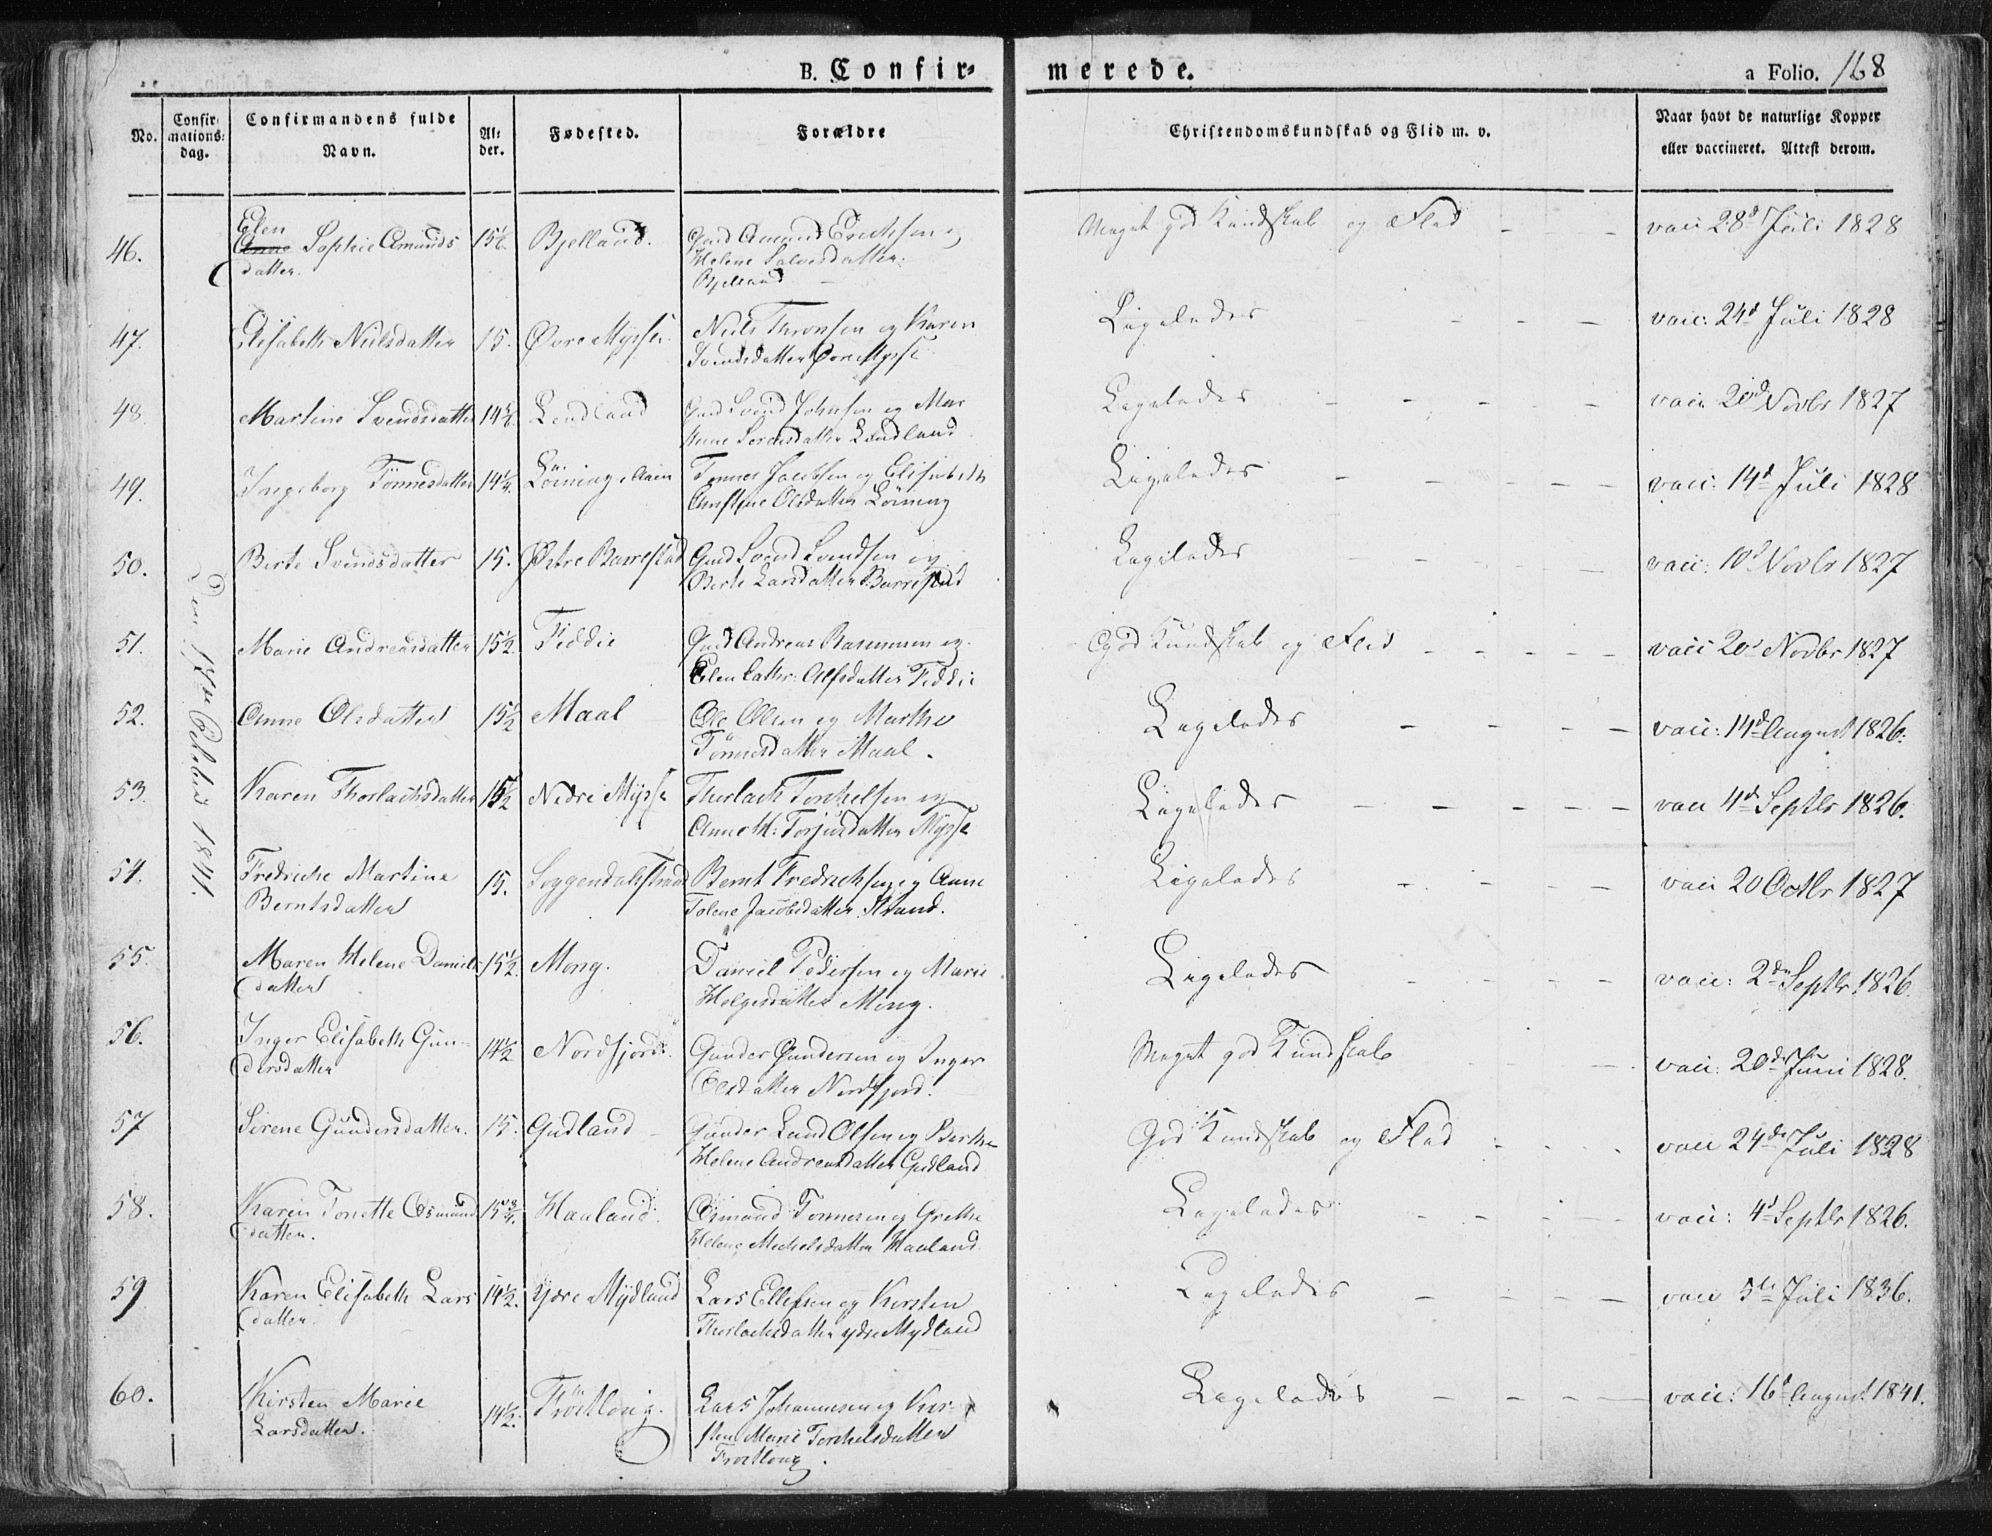 B. Confir-
merede.
a Folio. 168
No.
Confir-
mations-
dag.
Confirmandens fulde
Navn.
Al-
der.
Fødested.
Forældre
Christendomskundskab og Flid m. v.
Naar havt de naturlige Kopper
eller vaccineret. Attest derom.
Den 17de October 1841.
46.
Elen
Anne Sophie Amunds
datter.
Bjelland.
Gmd Amund Erichsen og
Helene Salvesdatter
Bjelland
Meget god Kundskab og Flid - - -
vacc 28d Juli 1828
47.
Elisabeth Nielsdatter
15.
Øvre Mysse
Niels Thronsen og Karen
Svendsdatter Øvre Mysse
Ligeledes - - - -
vacc: 24d Juli 1828
48
Martine Svendsdatter
Lendland
Gmd Svend Johnsen og Mar
Lendland
Ligeledes - - - -
vacc 20d Novbr 1827
49.
Ingeborg Tönnesdatter
14¼
Tönnes Jacobsen og Elisabeth
Olsdatter Löining
Ligeledes - - - -
vacc: 14d Juli 1828
50.
Berte Svendsdatter
15.
Østre Barrestad
Gmd Svend Svendsen og
Berte Larsdatter Barrestad
Ligeledes - - - -
vacc: 10d Novbr 1827
51.
Marie Andreasdatter
15½
Fiddie
Gmd Andreas Rasmusen og
Elen Cathr: Alfsdatter Fiddie
God Kundskab og Flid - - - -
vacc 20d Novbr 1827
52.
Anne Olsdatter
15½
Maal
Ole Olsen og Marthe
Tönnesdatter Maal.
Ligeledes - - - -
vacc: 14d August 1826.
53.
Karen Thorlachsdatter
15½
Nedre Mysse
Thorlach Torkelsen og
Anne M: Torjusdatter Mysse
Ligeledes - - - - -
vacc 4d Septbr 1826.
54.
Fredriche Martine
Berntsdatter
15.
Soggendalstrand
Bernt Fredrichsen og Anne
Tolene Jacobsdatter Strand.
Ligeledes - - - -
vacc 20 Octbr 1827
55.
Maren Helene Daniels
datter
15½
Mong.
Daniel Pedersen og Marie
Helgesdatter Mong.
Ligeledes - - - -
vacc: 2de Septbr 1826.
56.
Inger Elisabeth Gun-
dersdatter
14½
Nordfjord.
Gunder Gundersen og Inger
Olsdatter Nordfjord.
Meget god Kundskab
vacc: 20de Juni 1828.
57
Sirene Gundersdatter.
15.
Gudland -
Gunder Olsen og Berthe
Helene Andreasdatter Gudland
God Kundskab og Flid - - -
vacc 24de Juli 1828
58.
Karen Tonette Osmund
datter.
15¾
Haaland.
Osmund Tönnesen og Grethe
Helene Michelsdatter Haaland.
Ligeledes - - - -
vacc: 4d Septbr 1826.
59
Karen Elisabeth Lars
datter.
14½.
Ydre Mydland
Lars Ellefsen og Kirsten
Thorlachsdatter ydre Mydland
Ligeledes - - - -
vacc 5te Juli 1836.
60.
Kirsten Marie
Larsdatter.
14½.
Fröitlong.
Lars Johannesen og Kir-
sten Marie Torkelsdatter
Fröitlong.
Ligeledes - - - -
vacc: 16d August 1841.